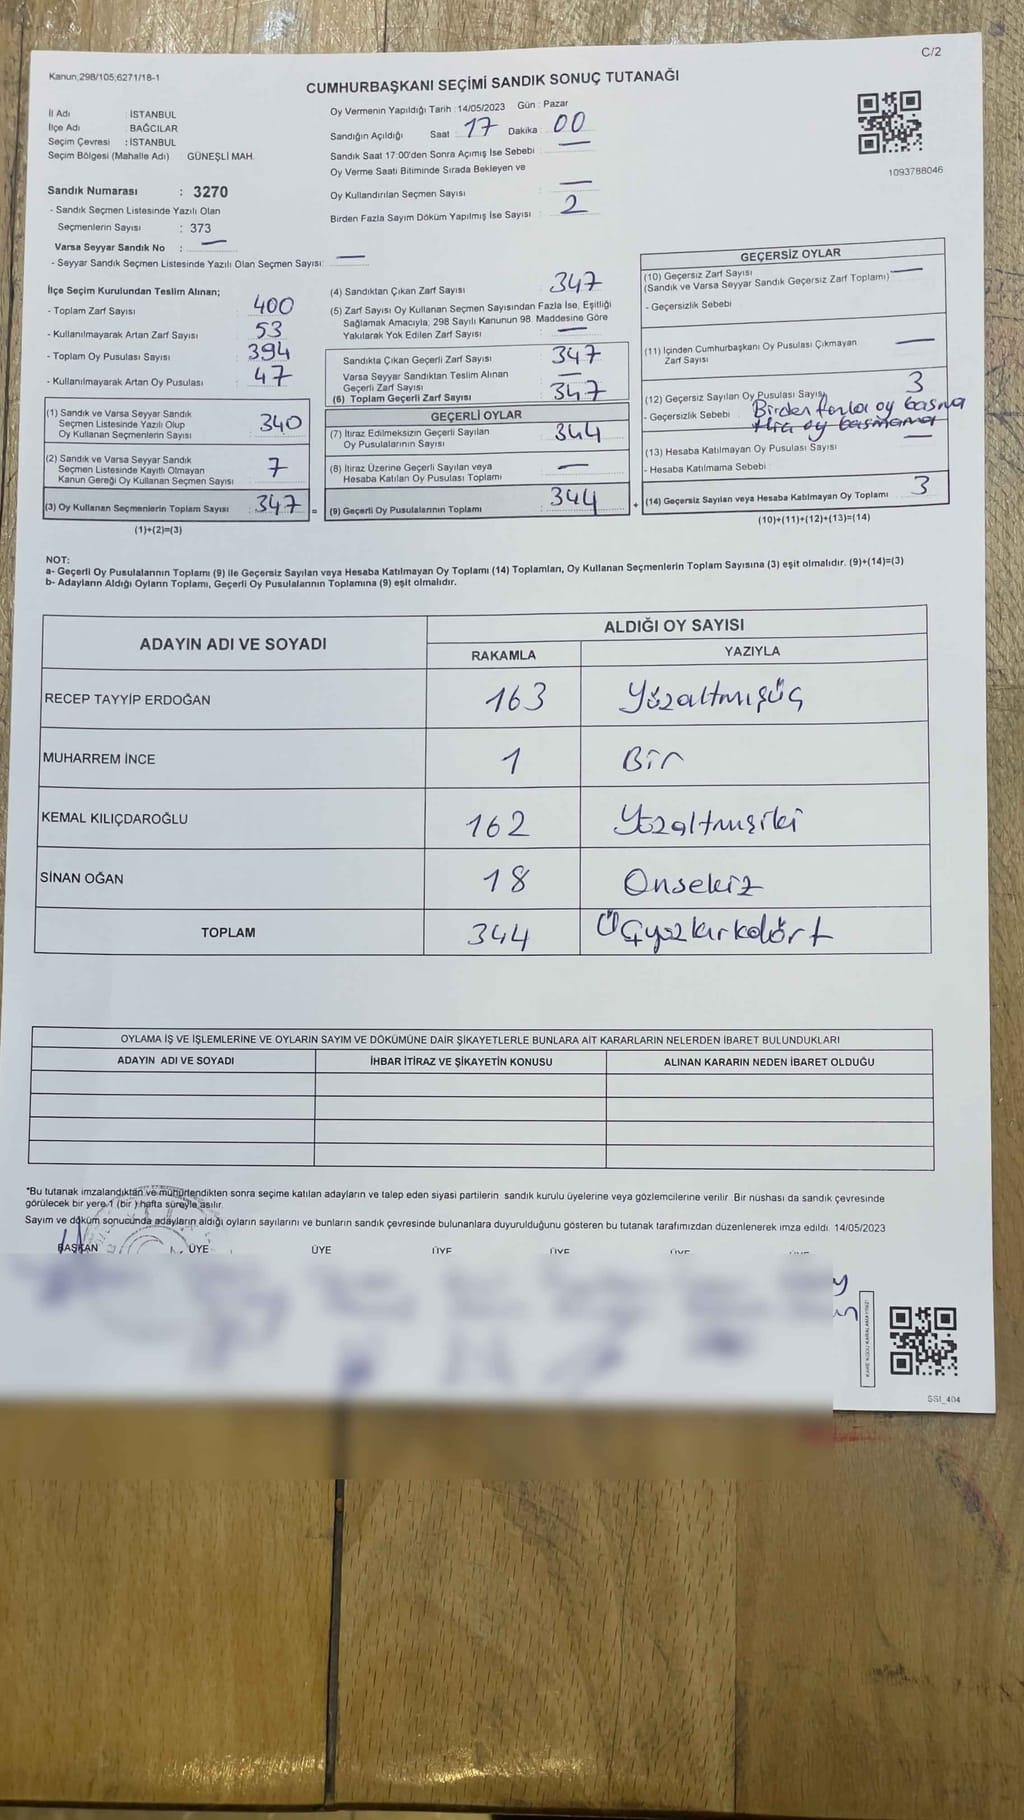 C/2
Kanun;298/105;6271/18-1
CUMHURBAŞKANI SEÇİMİ SANDIK SONUÇ TUTANAĞI
İl Adı : İSTANBUL
İlçe Adı : BAĞCILAR
Seçim Çevresi : İSTANBUL
Seçim Bölgesi (Mahalle Adı) GÜNEŞLİ MAH.
Sandık Numarası : 3270
- Sandık Seçmen Listesinde Yazılı Olan
Seçmenlerin Sayısı : 373
Varsa Seyyar Sandık No : —
- Seyyar Sandık Seçmen Listesinde Yazılı Olan Seçmen Sayısı: —
Oy Vermenin Yapıldığı Tarih : 14/05/2023 Gün : Pazar
Sandığın Açıldığı Saat : 17 Dakika : 00
Sandık Saat 17:00'den Sonra Açımış İse Sebebi : —
Oy Verme Saati Bitiminde Sırada Bekleyen ve
Oy Kullandırılan Seçmen Sayısı : —
Birden Fazla Sayım Döküm Yapılmış İse Sayısı : 2
1093788046
İlçe Seçim Kurulundan Teslim Alınan;
- Toplam Zarf Sayısı : 400
- Kullanılmayarak Artan Zarf Sayısı : 53
- Toplam Oy Pusulası Sayısı : 394
- Kullanılmayarak Artan Oy Pusulası : 47
(1) Sandık ve Varsa Seyyar Sandık
Seçmen Listesinde Yazılı Olup
Oy Kullanan Seçmenlerin Sayısı : 340
(2) Sandık ve Varsa Seyyar Sandık
Seçmen Listesinde Kayıtlı Olmayan
Kanun Gereği Oy Kullanan Seçmen Sayısı : 7
(3) Oy Kullanan Seçmenlerin Toplam Sayısı : 347 =
(1)+(2)=(3)
(4) Sandıktan Çıkan Zarf Sayısı : 347
(5) Zarf Sayısı Oy Kullanan Seçmen Sayısından Fazla İse, Eşitliği
Sağlamak Amacıyla; 298 Sayılı Kanunun 98. Maddesine Göre
Yakılarak Yok Edilen Zarf Sayısı : —
Sandıkta Çıkan Geçerli Zarf Sayısı : 347
Varsa Seyyar Sandıktan Teslim Alınan
Geçerli Zarf Sayısı : —
(6) Toplam Geçerli Zarf Sayısı : 347
GEÇERLİ OYLAR
(7) İtiraz Edilmeksizin Geçerli Sayılan
Oy Pusulalarının Sayısı : 344
(8) İtiraz Üzerine Geçerli Sayılan veya
Hesaba Katılan Oy Pusulası Toplamı : —
(9) Geçerli Oy Pusulalarının Toplamı : 344 +
GEÇERSİZ OYLAR
(10) Geçersiz Zarf Sayısı
(Sandık ve Varsa Seyyar Sandık Geçersiz Zarf Toplamı) —
- Geçersizlik Sebebi
(11) İçinden Cumhurbaşkanı Oy Pusulası Çıkmayan
Zarf Sayısı —
(12) Geçersiz Sayılan Oy Pusulası Sayısı 3
- Geçersizlik Sebebi Birden fazla oy basma
Hiç oy basmama
(13) Hesaba Katılmayan Oy Pusulası Sayısı —
- Hesaba Katılmama Sebebi
(14) Geçersiz Sayılan veya Hesaba Katılmayan Oy Toplamı 3
(10)+(11)+(12)+(13)=(14)
NOT:
a- Geçerli Oy Pusulalarının Toplamı (9) ile Geçersiz Sayılan veya Hesaba Katılmayan Oy Toplamı (14) Toplamları, Oy Kullanan Seçmenlerin Toplam Sayısına (3) eşit olmalıdır. (9)+(14)=(3)
b- Adayların Aldığı Oyların Toplamı, Geçerli Oy Pusulalarının Toplamına (9) eşit olmalıdır.
ADAYIN ADI VE SOYADI
ALDIĞI OY SAYISI
RAKAMLA YAZIYLA
RECEP TAYYİP ERDOĞAN 163 Yüzaltmışüç
MUHARREM İNCE 1 Bir
KEMAL KILIÇDAROĞLU 162 Yüzaltmışiki
SİNAN OĞAN 18 Onsekiz
TOPLAM 344 Üçyüzkırkdört
OYLAMA İŞ VE İŞLEMLERİNE VE OYLARIN SAYIM VE DÖKÜMÜNE DAİR ŞİKAYETLERLE BUNLARA AİT KARARLARIN NELERDEN İBARET BULUNDUKLARI
ADAYIN ADI VE SOYADI İHBAR İTİRAZ VE ŞİKAYETİN KONUSU ALINAN KARARIN NEDEN İBARET OLDUĞU
*Bu tutanak imzalandıktan ve mühürlendikten sonra seçime katılan adayların ve talep eden siyasi partilerin sandık kurulu üyelerine veya gözlemcilerine verilir. Bir nüshası da sandık çevresinde
görülecek bir yere 1 (bir) hafta süreyle asılır.
Sayım ve döküm sonucunda adayların aldığı oyların sayılarını ve bunların sandık çevresinde bulunanlara duyurulduğunu gösteren bu tutanak tarafımızdan düzenlenerek imza edildi. 14/05/2023
BAŞKAN ÜYE ÜYE ÜYE ÜYE
SSI_404